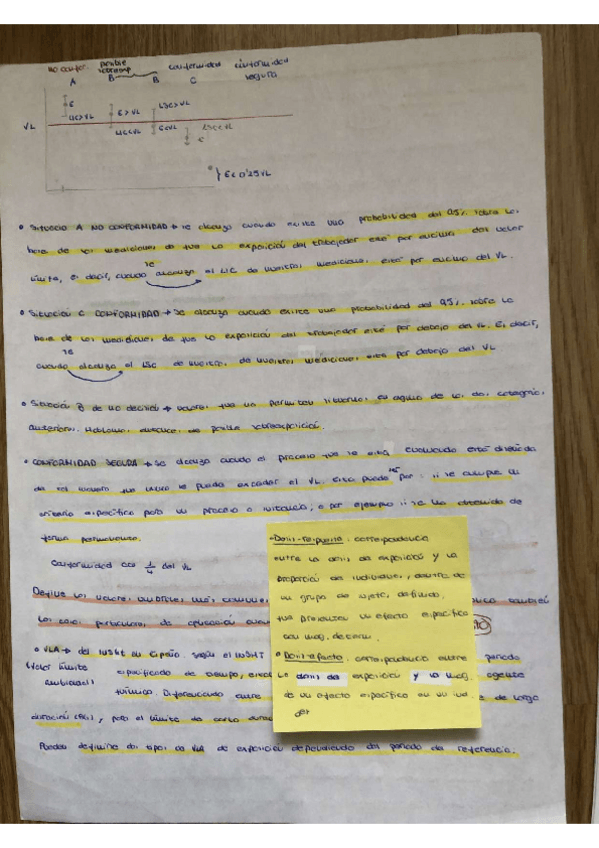 no confor. posible sobreexp conformidad conformidad segura
A B B C
E LSC>VL
LIC>VL E>VL
VL LIC<VL E<VL LSC<VL
E
} E < 0'25 VL
• Situación A NO CONFORMIDAD → se alcanza cuando existe una probabilidad del 95% sobre la
base de las mediciones de que la exposición del trabajador esté por encima del valor
límite, es decir, cuando se alcanza el LIC de nuestras mediciones está por encima del VL.
• Situación C CONFORMIDAD → Se alcanza cuando existe una probabilidad del 95% sobre la
base de las mediciones de que la exposición del trabajador esté por debajo del VL. Es decir,
cuando se alcanza el LSC de nuestras mediciones está por debajo del VL
• Situación B de no decisión → valores que no permiten situarnos en alguna de las dos categorías
anteriores. Hablamos entonces de posible sobreexposición.
• CONFORMIDAD SEGURA → Se alcanza cuando el proceso que se está evaluando está diseñado
de tal manera que nunca se pueda exceder el VL. Esto puede ser por: si se cumple un
criterio específico para un proceso o sustancia, o por ejemplo si se ha obtenido de
forma permanente.
Conformidad con 1/4 del VL
Define los valores ambientales más comunes también
los casos particulares de aplicación
• VLA → del INSHT en España. Según el INSHT periodo
(Valor límite ambiental) especificado de tiempo, agente
químico. Diferenciando entre de larga
duración (8h), para el límite de corta
Puedes definirse dos tipos de VLA de exposición dependiendo del periodo de referencia.
-Dosis-respuesta: correspondencia
entre la dosis de exposición y la
proporción de individuos, dentro de
un grupo de sujetos definido,
que presentan un efecto específico
con mag. determ.
• Dosis-efecto: correspondencia entre
la dosis de exposición y la mag.
de un efecto específico en un ind
det